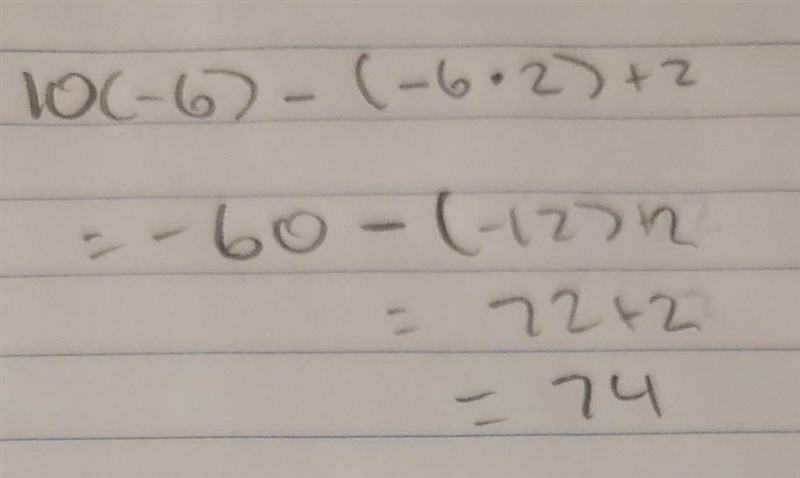 10(-6) - (-6 · 2) + 2
= -60 - (-12) + 2
= 72 + 2
= 74